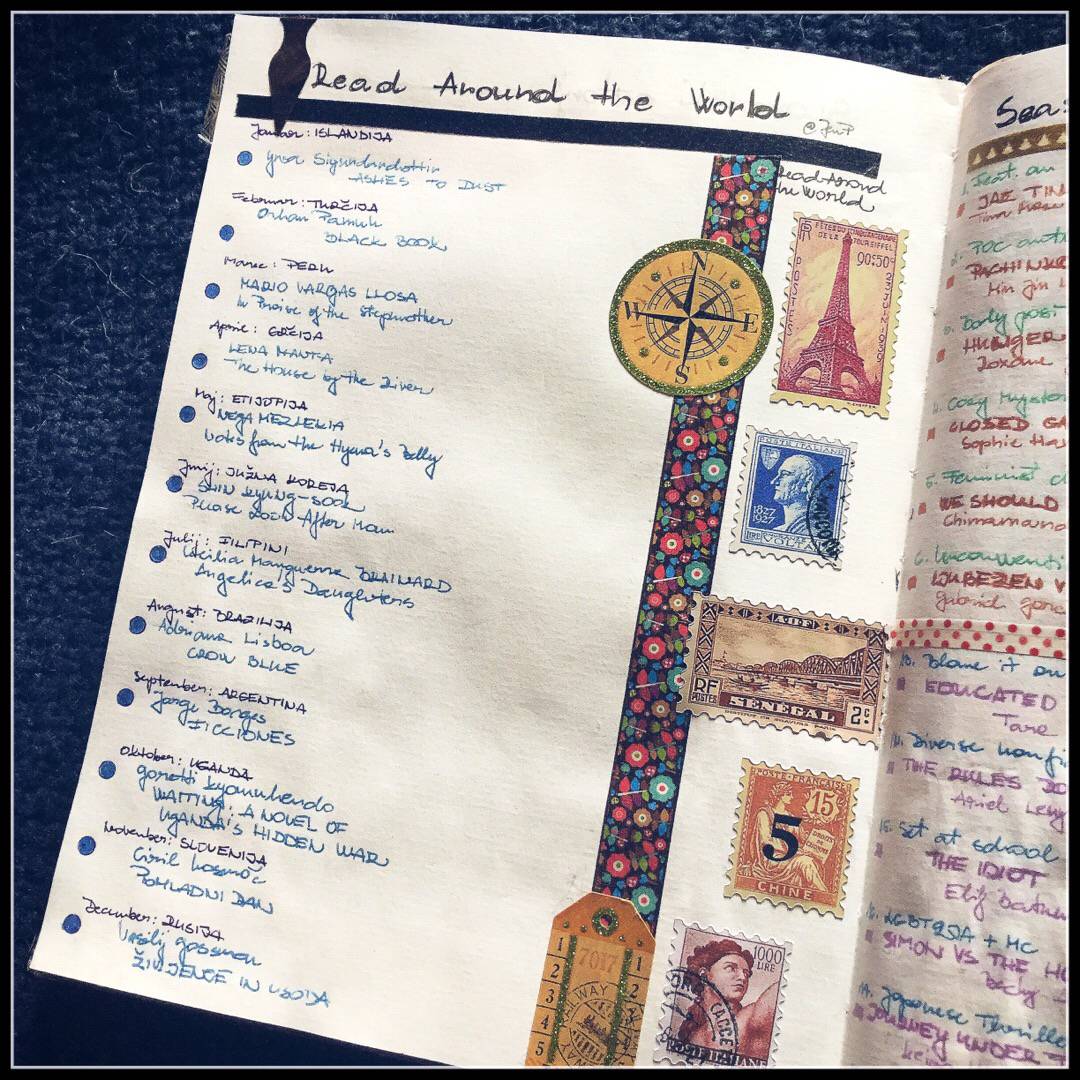 Read Around the World
Januar: ISLANDIJA
Yrsa Sigurdardottir
ASHES TO DUST
Februar: TURČIJA
Orhan Pamuk
BLACK BOOK
Marec: PERU
MARIO VARGAS LLOSA
In Praise of the Stepmother
April: GRČIJA
LENA MANTA
The House by the River
Maj: ETIJOPIJA
NEGA MEZLEKIA
Notes from the Hyena's Belly
Junij: JUŽNA KOREJA
SHIN Kyung-SOOK
Please Look After Mom
Julij: FILIPINI
Cecilia Manguerra BRAINARD
Angelica's Daughters
Avgust: BRAZILIJA
Adriana Lisboa
CROW BLUE
September: ARGENTINA
Jorge Borges
FICCIONES
Oktober: UGANDA
Goretti Kyomuhendo
WAITING: A NOVEL OF
UGANDA'S HIDDEN WAR
November: SLOVENIJA
Ciril Kosmač
POMLADNI DAN
December: RUSIJA
Vasilij Grossman
ŽIVLJENJE IN USODA
Read Around
the World
N
W E
S
FÊTES DU CINQUANTENAIRE
DE LA TOUR EIFFEL
90c+50c
POSTES
POSTE ITALIANE
1827
1927
LIRE
VOLTA
AOF
RF
POSTES
SENEGAL
2c
POSTE FRANÇAISE
15c
DROITS
DE
L'HOMME
5
CHINE
1000
LIRE
POSTE ITALIANE
7017
1 1
2 2
3 3
4 4
5 5
1. Feat. an
2. POC auth
PACHINKO
Min Jin L
3. Body posi
HUNGER
Roxane
4. Cozy Myster
CLOSED CA
Sophie Ha
5. Feminist
WE SHOULD
Chimamand
6. Unconventi
LJUBEZEN V
Gabriel Garc
Blame it on
EDUCATED
Tara
Diverse nonfi
THE RULES DO
Ariel Levy
15. Set at school
THE IDIOT
Elif Batuman
LGBTQIA + MC
SIMON VS THE HO
Becky
Japanese Thrille
JOURNEY UNDER T
Kei